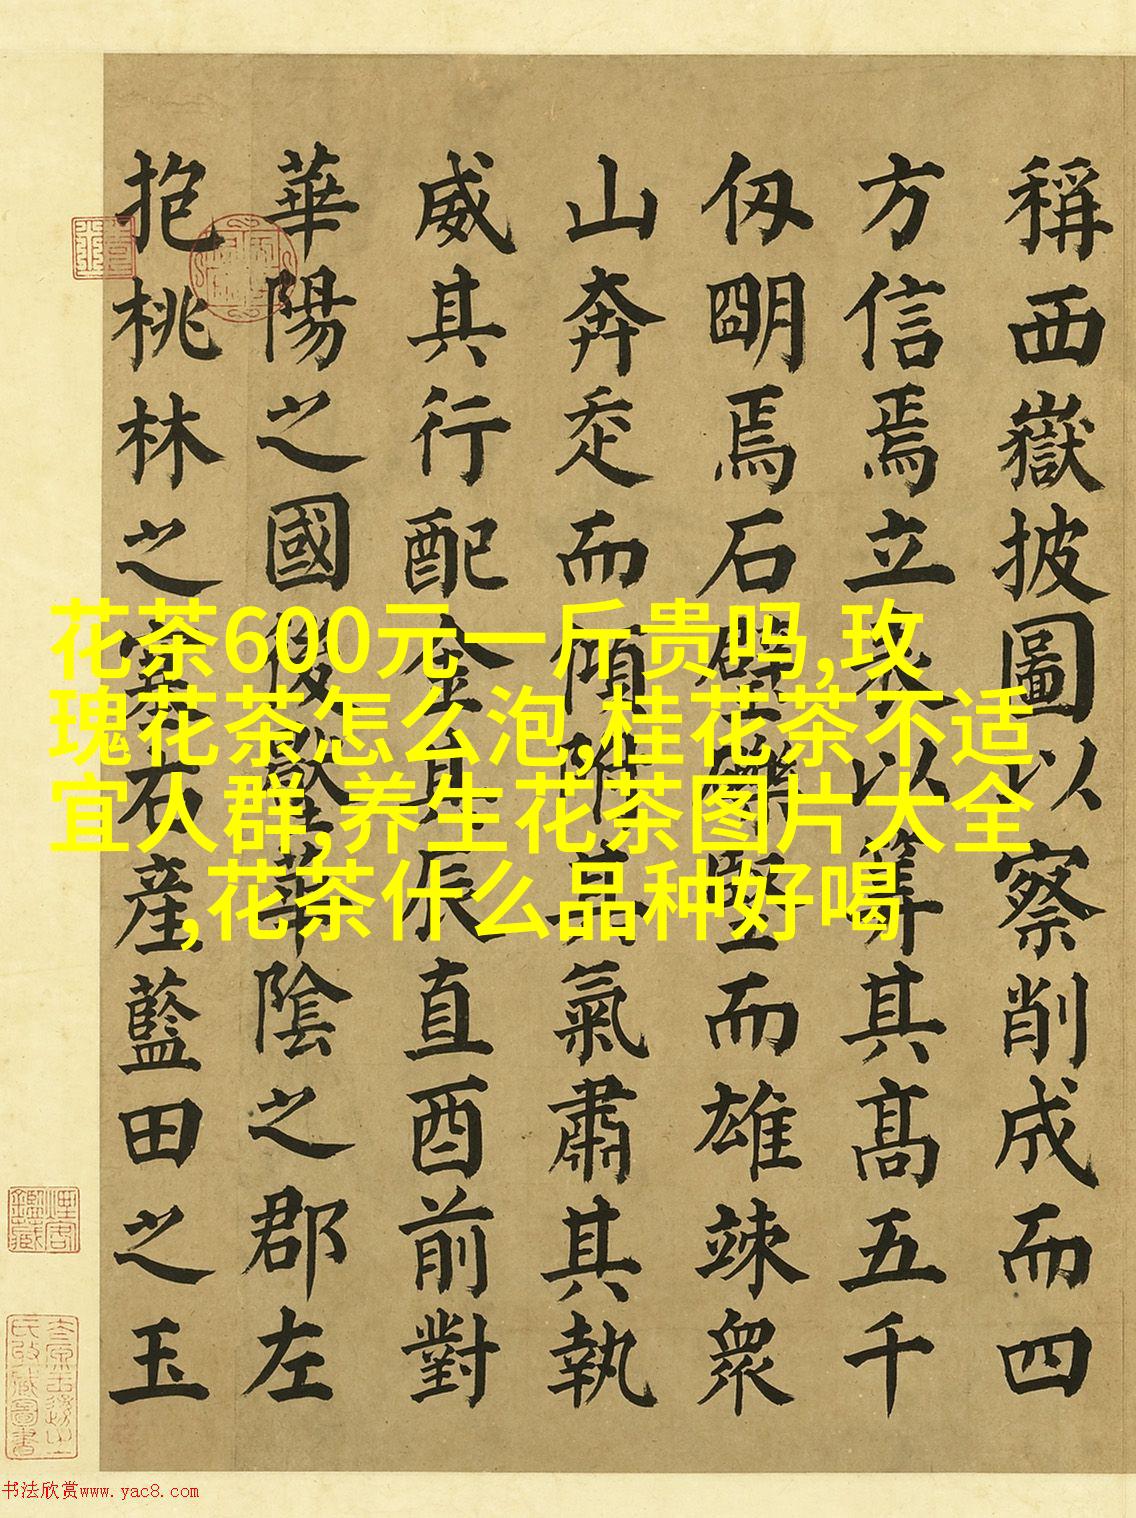 稱西嶽披圖以察削成而四
方信焉立表以筭其髙五千
仭朙焉石壁豎而雄竦衆
山奔走而傾附其氣肅其執
威其行配金其辰直酉前對
華陽之國後華陰之郡左
抱桃林之塞石產藍田之玉
花茶600元一斤贵吗,玫
瑰花茶怎么泡,桂花茶不适
宜人群,养生花茶图片大全
,花茶什么品种好喝
书法欣赏www.yac8.com